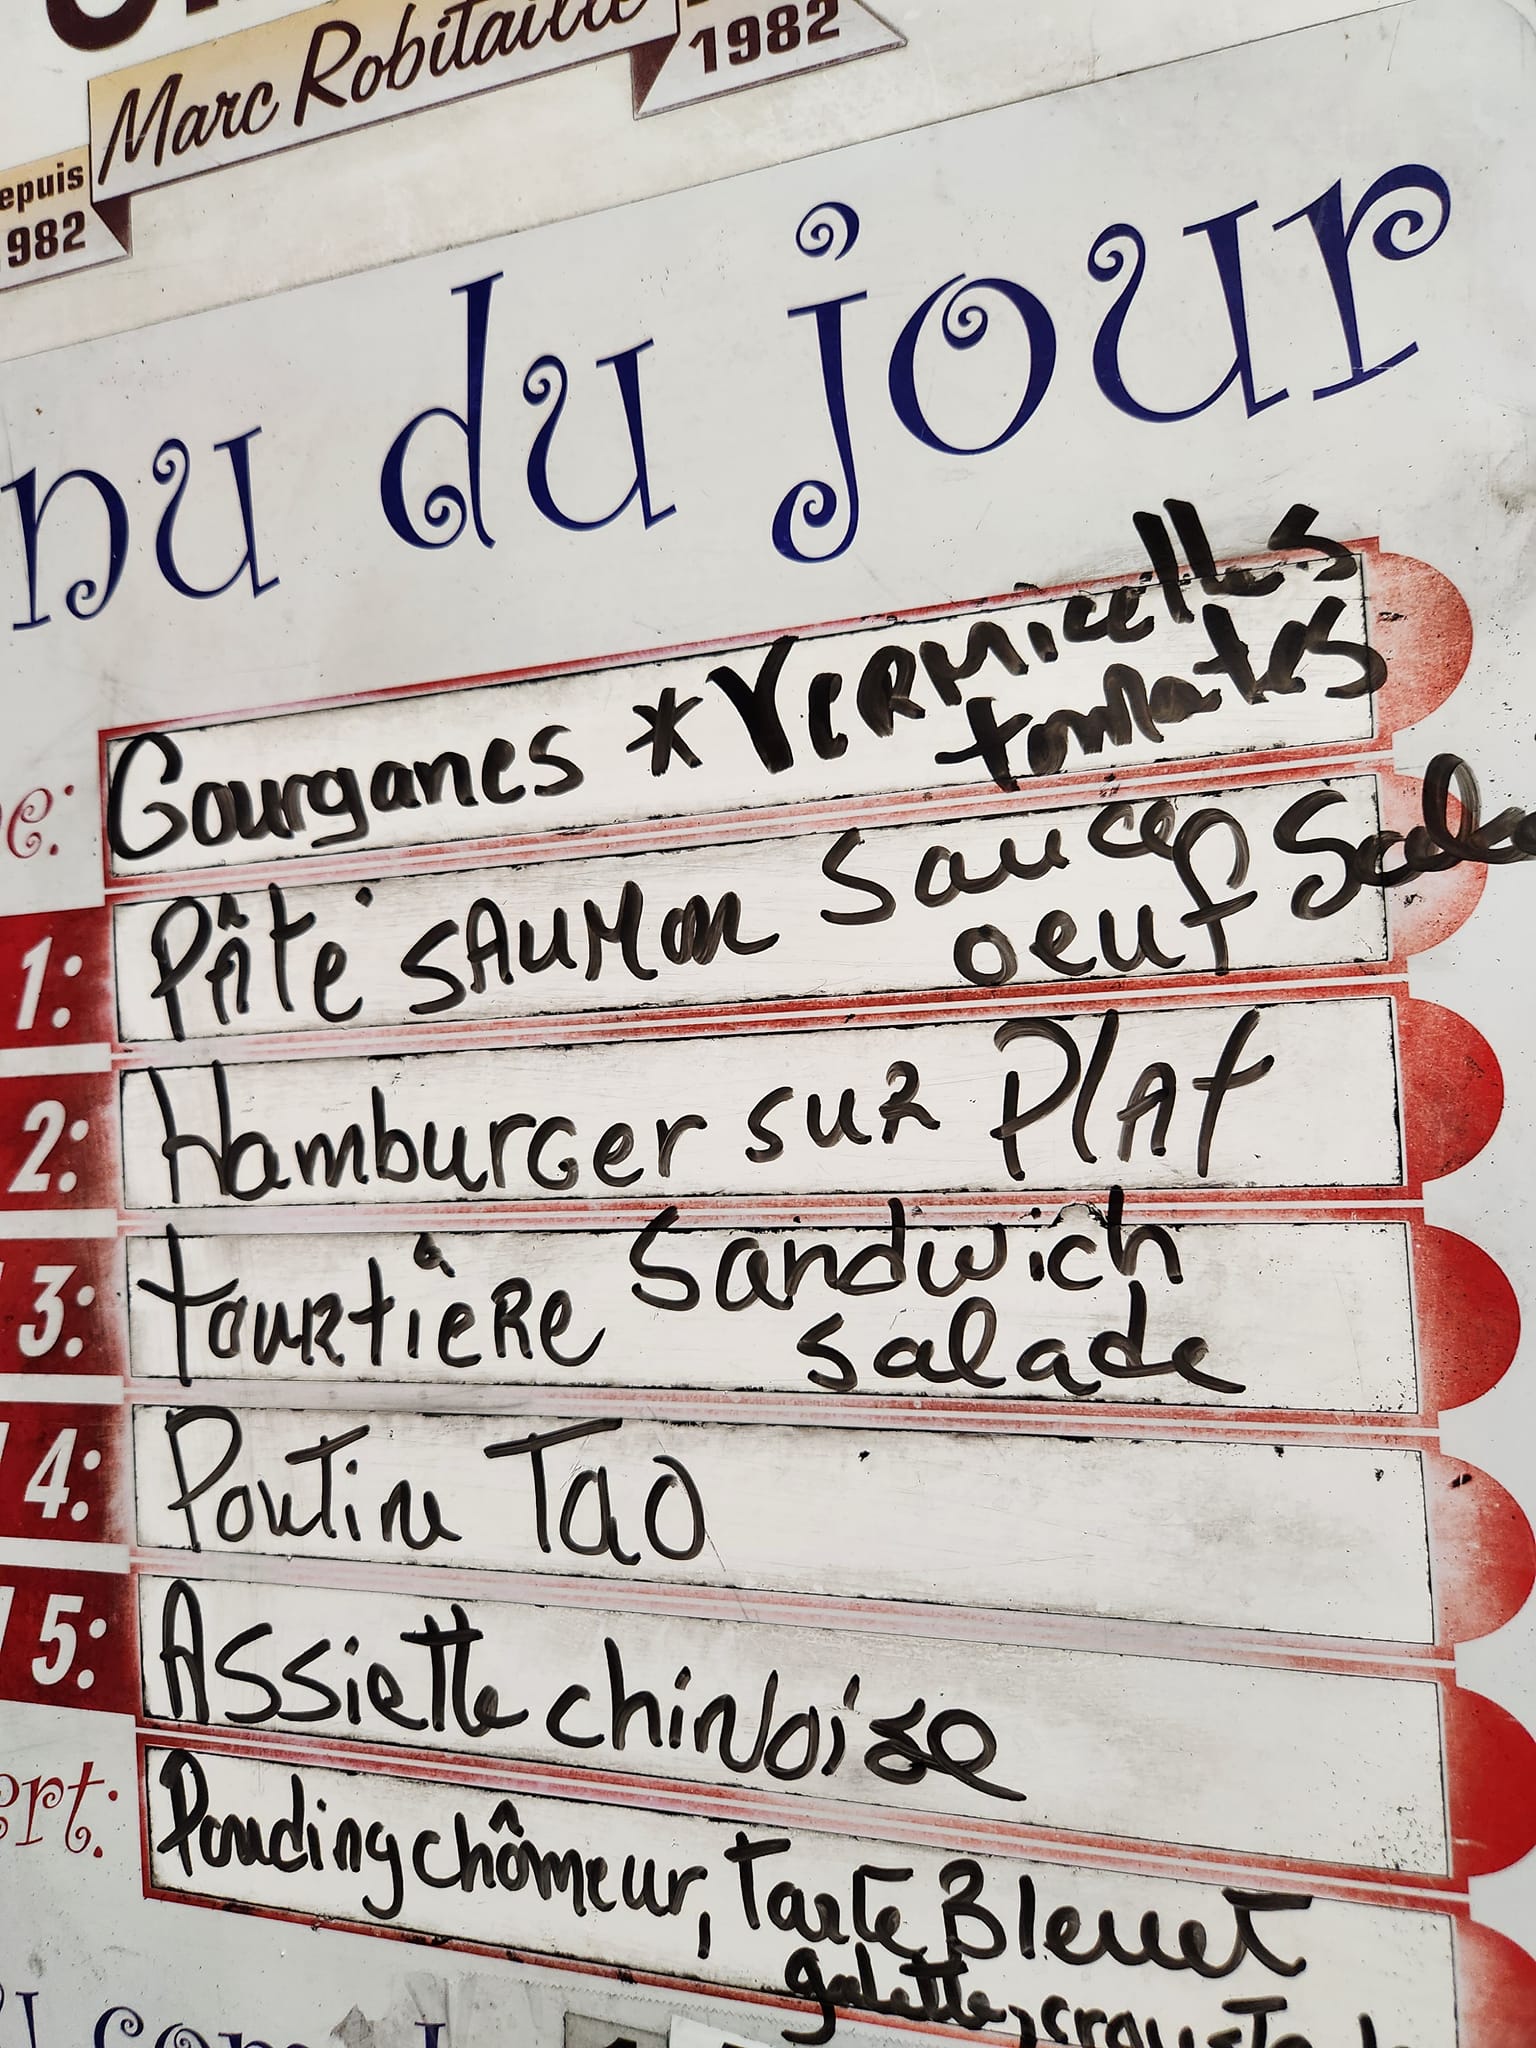 Marc Robitaille
1982
epuis
982
nu du jour
e: Gourganes * Vermicelles
tomates
1: Pâté saumon sauce
oeuf Sala
2: Hamburger sur Plat
3: tourtière Sandwich
salade
4: Poutine Tao
5: Assiette chinoise
ert: Pouding chômeur, Tarte Bleuet
galette,